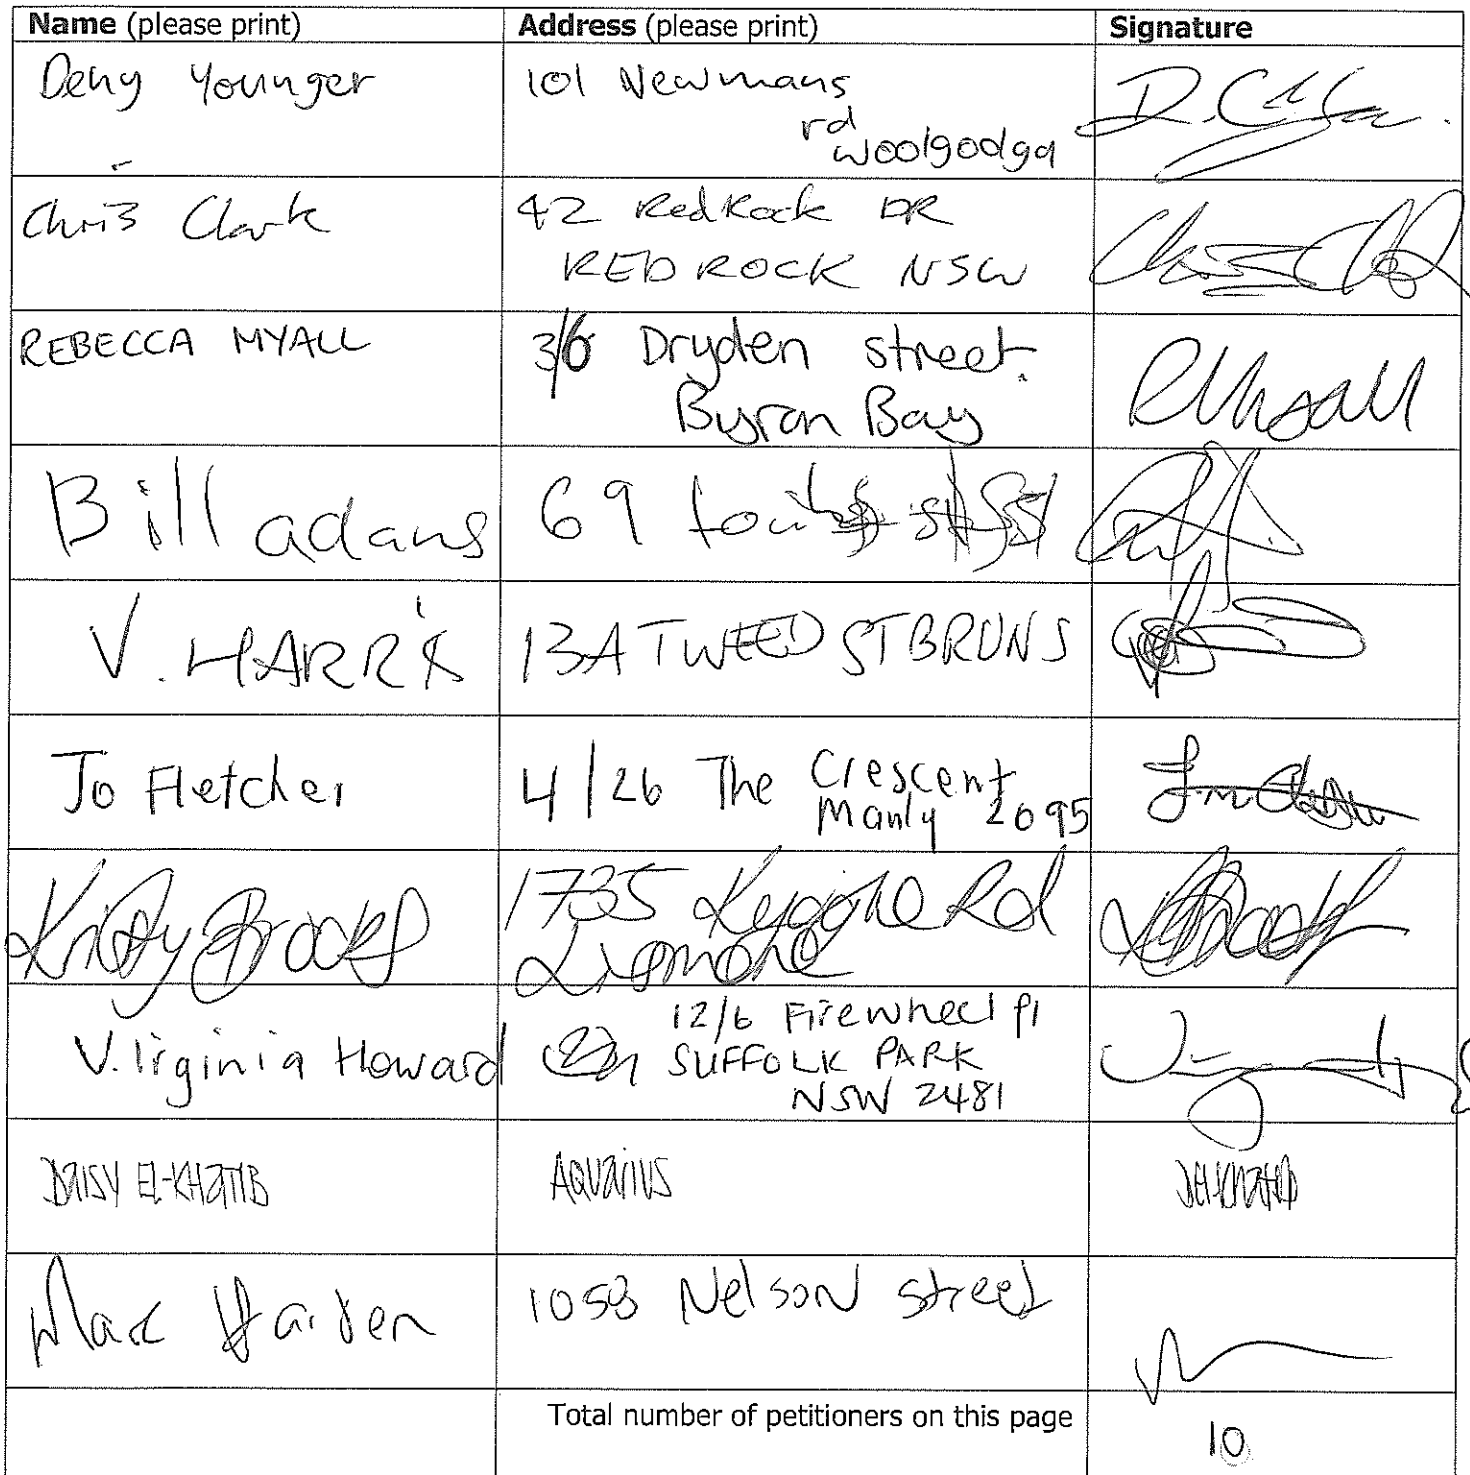 Name (please print) Address (please print) Signature
Deny Younger 101 Newmans
rd
woolgodga
Chris Clark 42 Red Rock DR
RED ROCK NSW
REBECCA MYALL 3/6 Dryden street.
Byron Bay
Bill adams 69
V. HARRIS 13A TWEED ST BRUNS
Jo Fletcher 4/26 The Crescent
Manly 2095
Kristy Brooks 1735 Rd
Lismore
V.irginia Howard 12/6 Firewheel pl
SUFFOLK PARK
NSW 2481
DAISY EL-KHATIB AQUARIUS
Marc Harden 1058 Nelson street
Total number of petitioners on this page
10